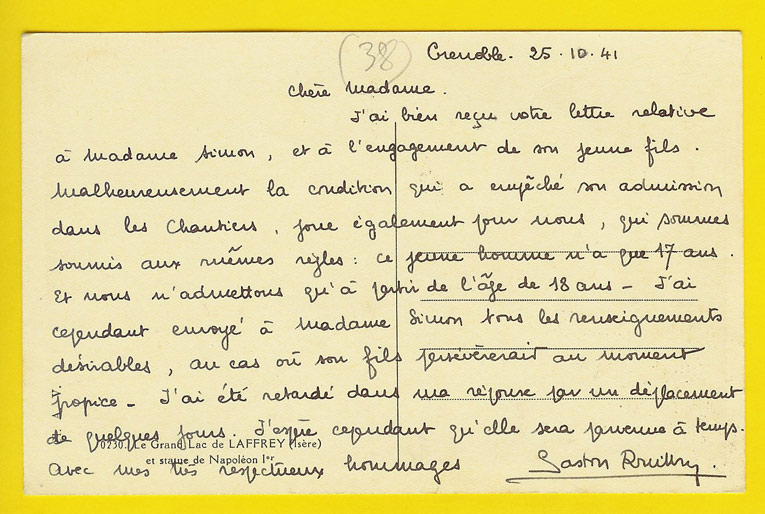 (38)
Grenoble. 25.10.41
Chère Madame.
J'ai bien reçu votre lettre relative
à Madame Simon, et à l'engagement de son jeune fils.
Malheureusement la condition qui a empêché son admission
dans les Chantiers, joue également pour nous, qui sommes
soumis aux mêmes règles : ce jeune homme n'a que 17 ans.
Et nous n'admettons qu'à partir de l'âge de 18 ans - J'ai
cependant envoyé à Madame Simon tous les renseignements
désirables, au cas où son fils persévèrerait au moment
propice - J'ai été retardé dans ma réponse par un déplacement
de quelques jours. J'espère cependant qu'elle sera parvenue à temps.
0230. Le Grand Lac de LAFFREY (Isère)
et statue de Napoléon Ier
Avec mes très respectueux hommages
Gaston